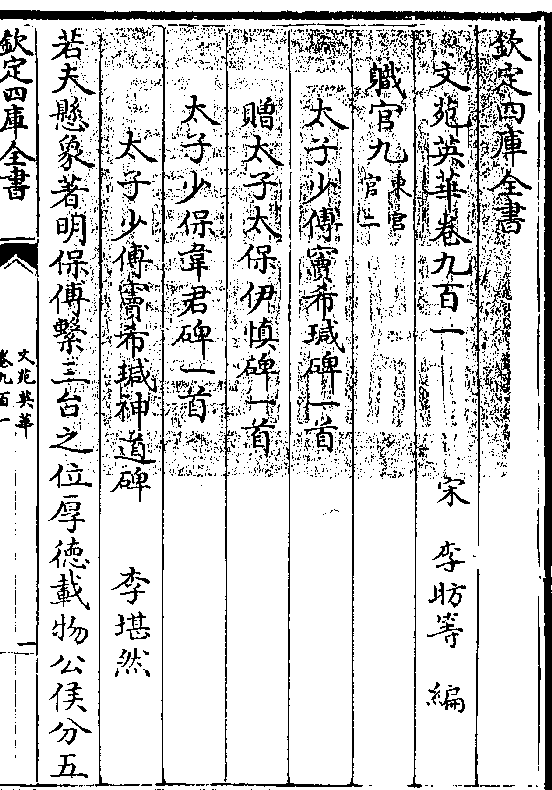 欽定四庫全書
文苑英華卷九百一 宋 李昉等 編
職官九 東宮官二
太子少傅竇希瑊碑一首
贈太子太保伊慎碑一首
太子少保韋君碑一首
太子少傅竇希瑊神道碑 李堪然
若夫懸象著明保傅繫三台之位厚德載物公侯分五
欽定四庫全書
文苑英華
卷九百一
一